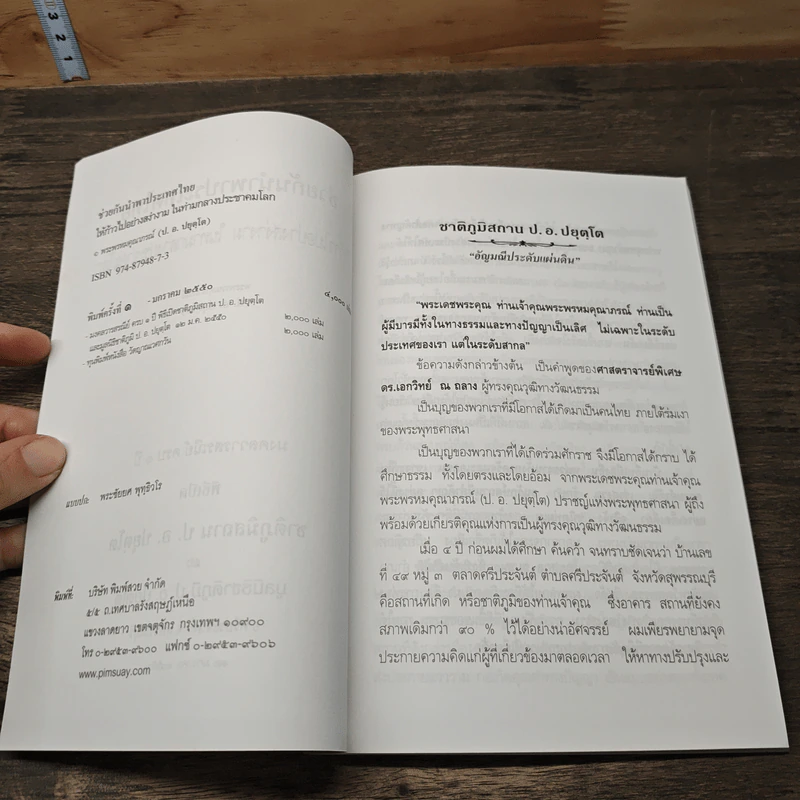 3
2
1
ช่วยกันนำพาประเทศไทย
ให้ก้าวไปอย่างสง่างาม ในท่ามกลางประชาคมโลก
© พระพรหมคุณาภรณ์ (ป. อ. ปยุตฺโต)
ISBN 974-87948-7-3
พิมพ์ครั้งที่ ๑ - มกราคม ๒๕๕๐ ๔,๐๐๐ เล่ม
- มงคลวารสรณีย์ ครบ ๑ ปี พิธีเปิดชาติภูมิสถาน ป. อ. ปยุตฺโต
และมูลนิธิชาติภูมิ ป. อ. ปยุตฺโต ๑๒ ม.ค. ๒๕๕๐ ๒,๐๐๐ เล่ม
- ทุนพิมพ์หนังสือ วัดญาณเวศกวัน ๒,๐๐๐ เล่ม
แบบปก: พระชัยยศ พุทฺธิวโร
พิมพ์ที่: บริษัท พิมพ์สวย จำกัด
๕/๕ ถ.เทศบาลรังสฤษฎิ์เหนือ
แขวงลาดยาว เขตจตุจักร กรุงเทพฯ ๑๐๙๐๐
โทร ๐-๒๙๕๓-๙๖๐๐ แฟกซ์ ๐-๒๙๕๓-๙๖๐๖
www.pimsuay.com
ชาติภูมิสถาน ป. อ. ปยุตฺโต
"อัญมณีประดับแผ่นดิน"
"พระเดชพระคุณ ท่านเจ้าคุณพระพรหมคุณาภรณ์ ท่านเป็น
ผู้มีบารมีทั้งในทางธรรมและทางปัญญาเป็นเลิศ ไม่เฉพาะในระดับ
ประเทศของเรา แต่ในระดับสากล"
ข้อความดังกล่าวข้างต้น เป็นคำพูดของศาสตราจารย์พิเศษ
ดร.เอกวิทย์ ณ ถลาง ผู้ทรงคุณวุฒิทางวัฒนธรรม
เป็นบุญของพวกเราที่มีโอกาสได้เกิดมาเป็นคนไทย ภายใต้ร่มเงา
ของพระพุทธศาสนา
เป็นบุญของพวกเราที่ได้เกิดร่วมศักราช จึงมีโอกาสได้กราบ ได้
ศึกษาธรรม ทั้งโดยตรงและโดยอ้อม จากพระเดชพระคุณท่านเจ้าคุณ
พระพรหมคุณาภรณ์ (ป. อ. ปยุตฺโต) ปราชญ์แห่งพระพุทธศาสนา ผู้ถึง
พร้อมด้วยเกียรติคุณแห่งการเป็นผู้ทรงคุณวุฒิทางวัฒนธรรม
เมื่อ ๔ ปี ก่อนผมได้ศึกษา ค้นคว้า จนทราบชัดเจนว่า บ้านเลข
ที่ ๔๙ หมู่ ๓ ตลาดศรีประจันต์ ตำบลศรีประจันต์ จังหวัดสุพรรณบุรี
คือสถานที่เกิด หรือชาติภูมิของท่านเจ้าคุณ ซึ่งอาคาร สถานที่ยังคง
สภาพเดิมกว่า ๙๐ % ไว้ได้อย่างน่าอัศจรรย์ ผมเพียรพยายามจุด
ประกายความคิดแก่ผู้ที่เกี่ยวข้องมาตลอดเวลา ให้หาทางปรับปรุงและ